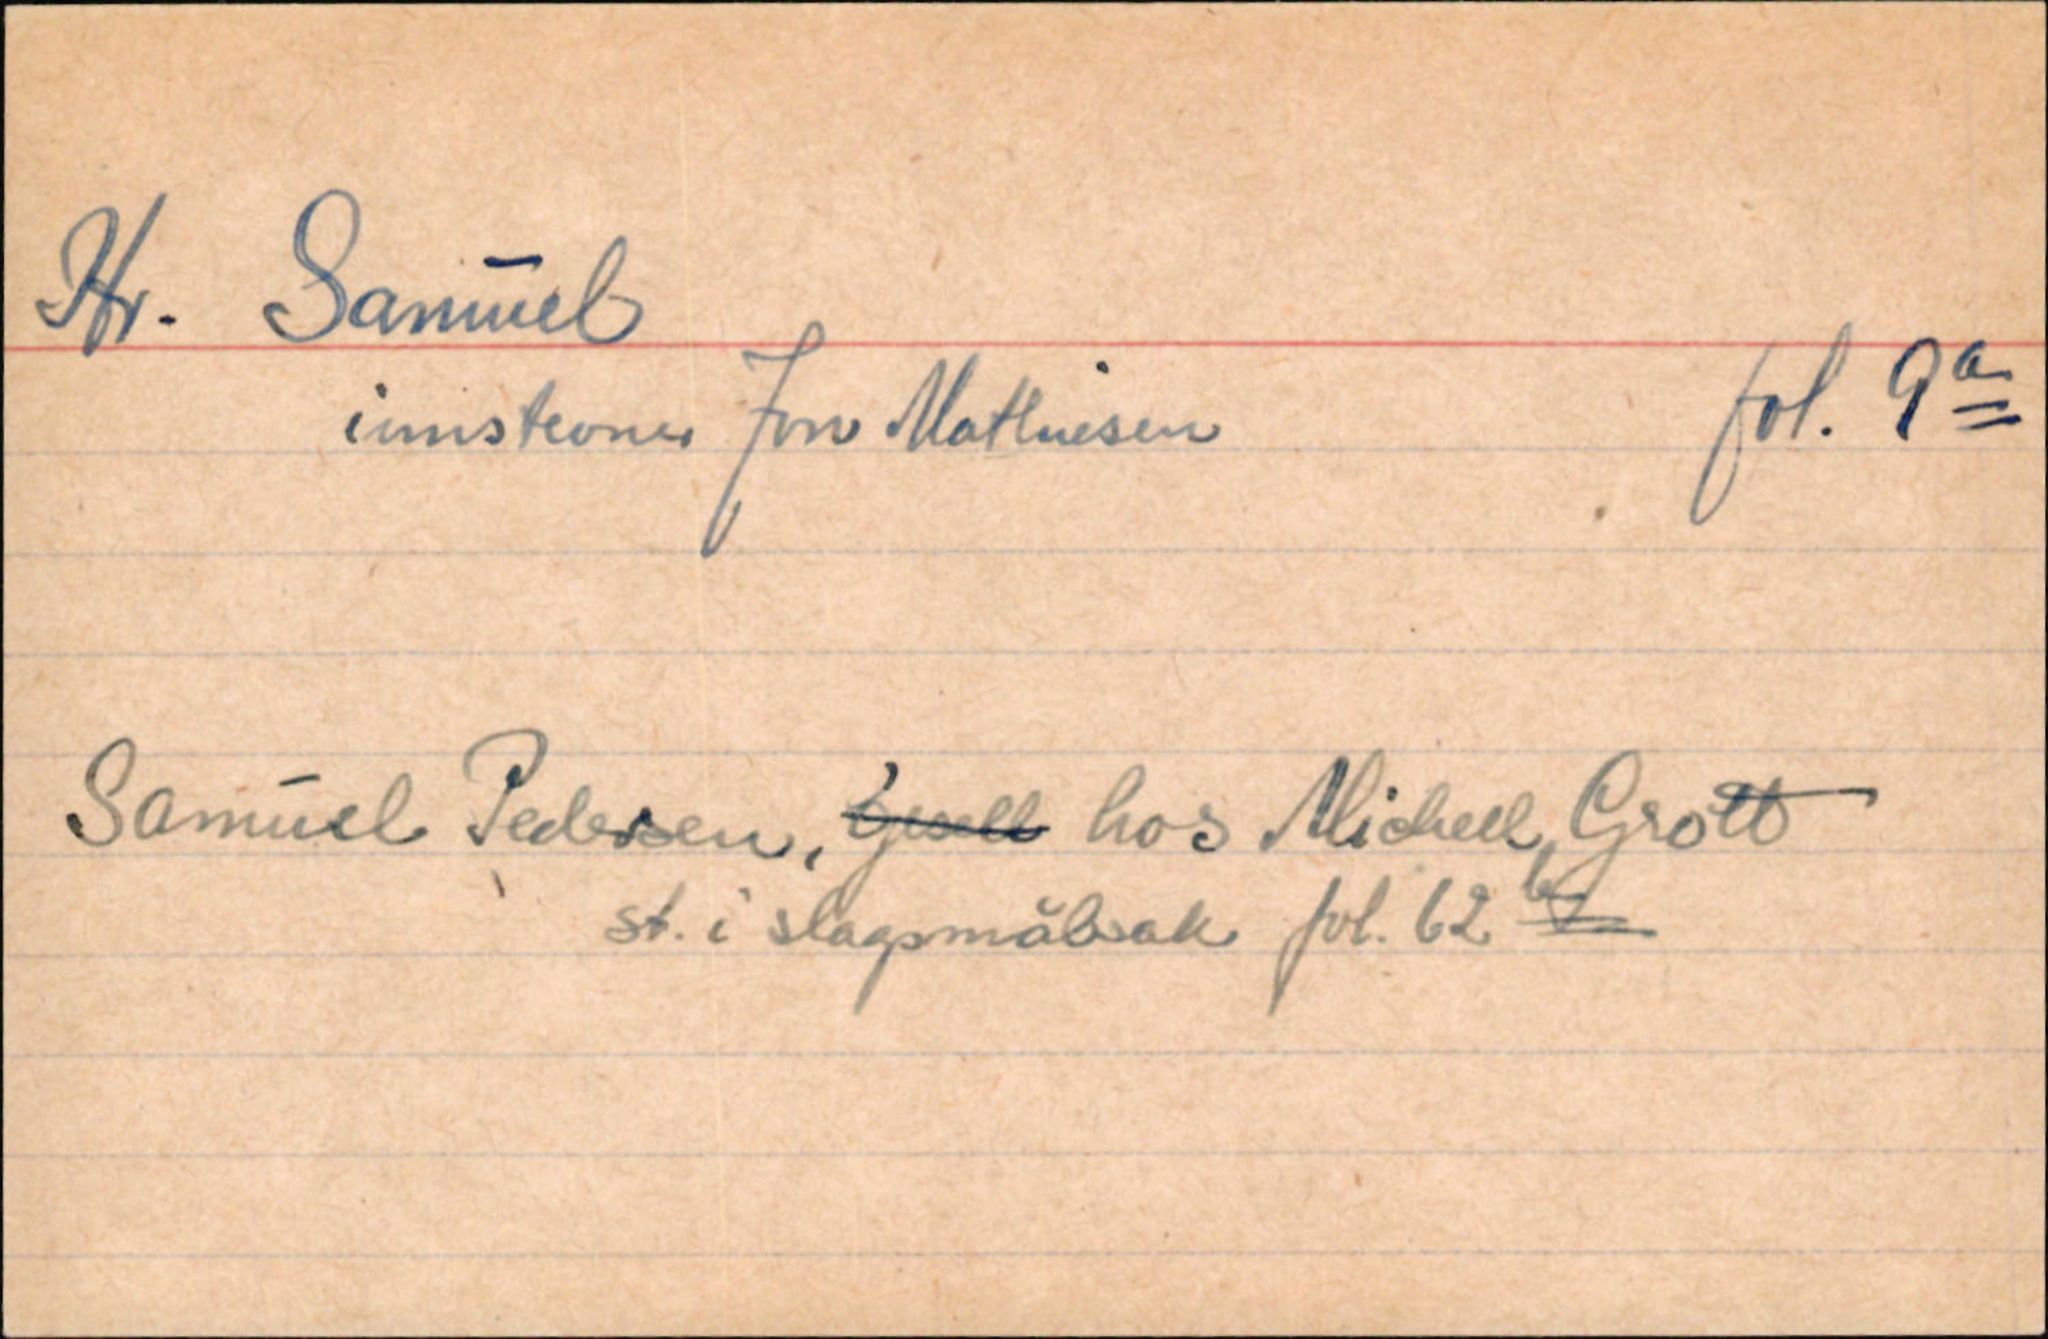 Hr. Samuel
innstevner Jon Mathiesen fol. 9a
Samuel Pedersen, hos Michell Grott
st. i slagsmålsak fol. 62 b